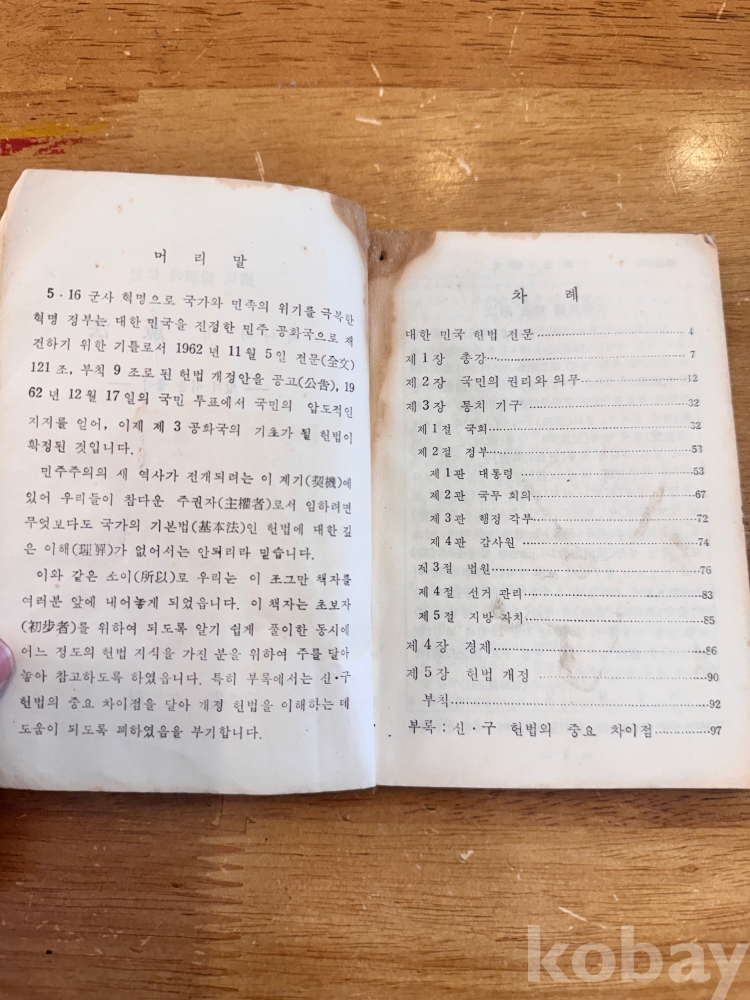 머리말
5·16 군사 혁명으로 국가와 민족의 위기를 극복한
혁명 정부는 대한 민국을 진정한 민주 공화국으로 재
건하기 위한 기틀로서 1962 년 11 월 5 일 전문(全文)
121 조, 부칙 9 조로 된 헌법 개정안을 공고(公告), 19
62 년 12 월 17 일의 국민 투표에서 국민의 압도적인
지지를 얻어, 이제 제 3 공화국의 기초가 될 헌법이
확정된 것입니다.
민주주의의 세 역사가 전개되려는 이 계기(契機)에
있어 우리들이 참다운 주권자(主權者)로서 임하려면
무엇보다도 국가의 기본법(基本法)인 헌법에 대한 깊
은 이해(理解)가 없어서는 안되리라 믿습니다.
이와 같은 소이(所以)로 우리는 이 조그만 책자를
여러분 앞에 내어놓게 되었읍니다. 이 책자는 초보자
(初步者)를 위하여 되도록 알기 쉽게 풀이한 동시에
어느 정도의 헌법 지식을 가진 분을 위하여 주를 달아
놓아 참고하도록 하였읍니다. 특히 부록에서는 신·구
헌법의 중요 차이점을 달아 개정 헌법을 이해하는 데
도움이 되도록 꾀하였음을 부기합니다.
차례
대한 민국 헌법 전문 4
제 1 장 총강 7
제 2 장 국민의 권리와 의무 12
제 3 장 통치 기구 32
제 1 절 국회 32
제 2 절 정부 53
제 1 관 대통령 53
제 2 관 국무 회의 67
제 3 관 행정 각부 72
제 4 관 감사원 74
제 3 절 법원 76
제 4 절 선거 관리 83
제 5 절 지방 자치 85
제 4 장 경제 86
제 5 장 헌법 개정 90
부칙 92
부록 : 신·구 헌법의 중요 차이점 97
kobay